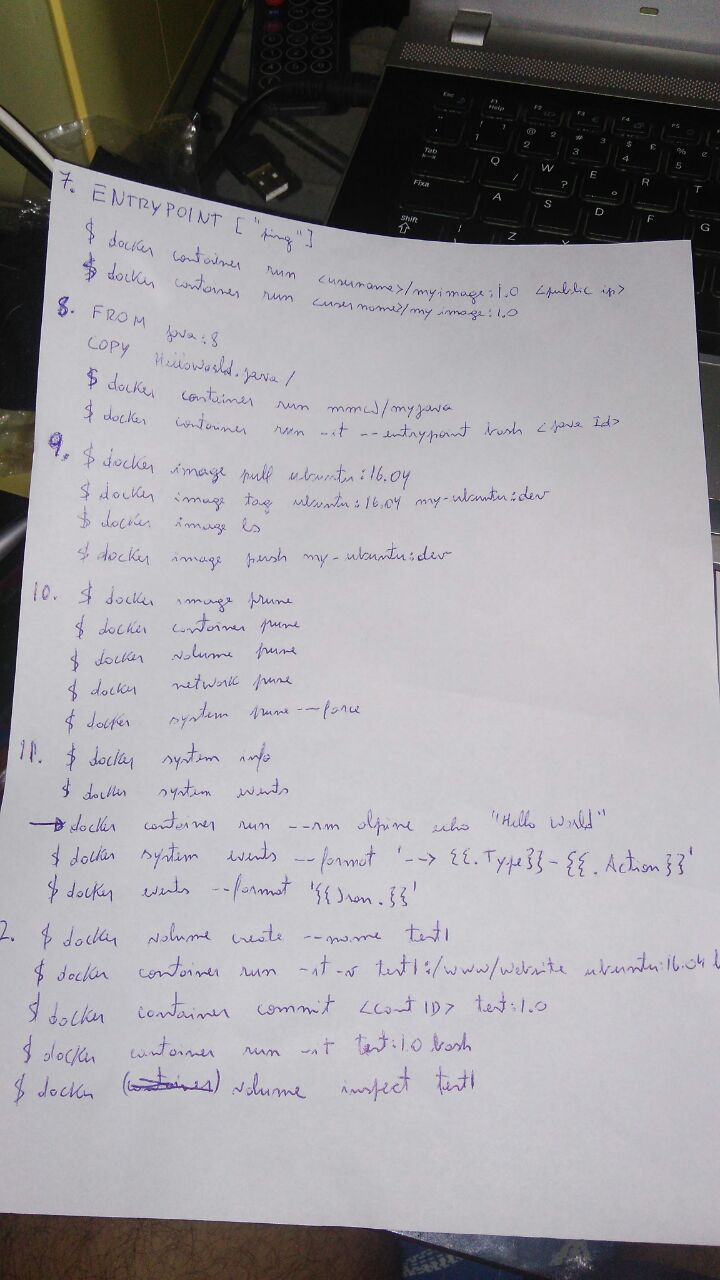 7. ENTRYPOINT ["ping"]
$ docker container run <username>/myimage:1.0 <public ip>
$ docker container run <username>/myimage:1.0
8. FROM java:8
COPY HelloWorld.java /
$ docker container run /myjava
$ docker container run -it --entrypoint bash <java Id>
9. $ docker image pull ubuntu:16.04
$ docker image tag ubuntu:16.04 my-ubuntu:dev
$ docker image ls
$ docker image push my-ubuntu:dev
10. $ docker image prune
$ docker container prune
$ docker volume prune
$ docker network prune
$ docker system prune --force
11. $ docker system info
$ docker system events
→ docker container run --rm alpine echo "Hello World"
$ docker system events --format '--> {{.Type}}-{{.Action}}'
$ docker events --format '{{Json.}}'
2. $ docker volume create --name test1
$ docker container run -it -v test1:/www/website ubuntu:16.04 b
$ docker container commit <cont ID> test:1.0
$ docker container run -it test:1.0 bash
$ docker (container) volume inspect test1
Esc
F1
Help
F2
F3
F4
F5
1
2
3
4
5
Tab
Q
W
E
R
T
Fixa
A
S
D
F
G
Shift
Z
X
C